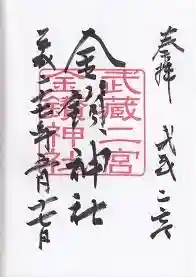 奉拝
武蔵二宮
金鑚神社
武蔵二宮
金鑚神社
平成二十六年 月十七日